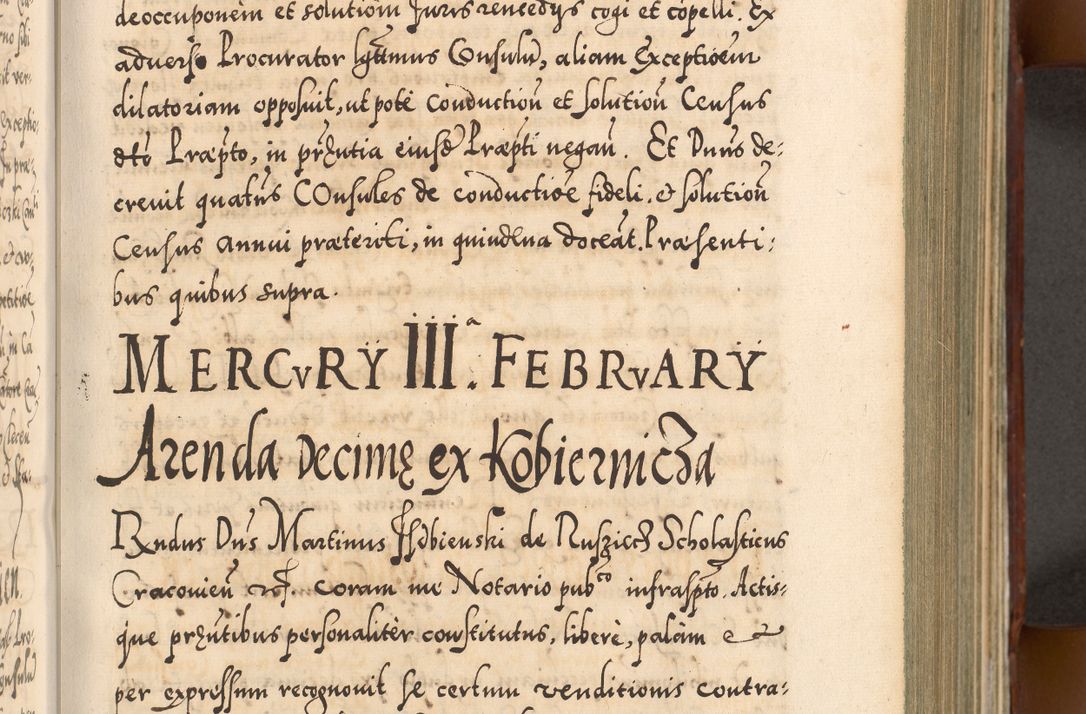 deoccuponem et solutiom Juris rencedys cogi et copelli. Ex
aduerso Procurator lgttmus Consulu, aliam Exceptioem
dilatoriam opposuit, ut pote conduction et solution Census
dto Præpto, in prntia eiusd Præpti negan. Et Dnus de:
creuit quatns COnsules de conductioe fideli. et solution
Census annui præteriti, in quindena doceat. Præsenti:
bus quibus supra.
MERCvRY III.ª FEBRvARY
Arenda Decimę ex Kobiernicza
Rndus Dns Martinus Isdbienski de Ruszicz Scholasticus
Cracouien etc. coram me Notario pubco infraspto. Actis:
que prntibus personalitèr constitutus, liberè, palàm e
per expressum recognouit se certum venditionis contra: